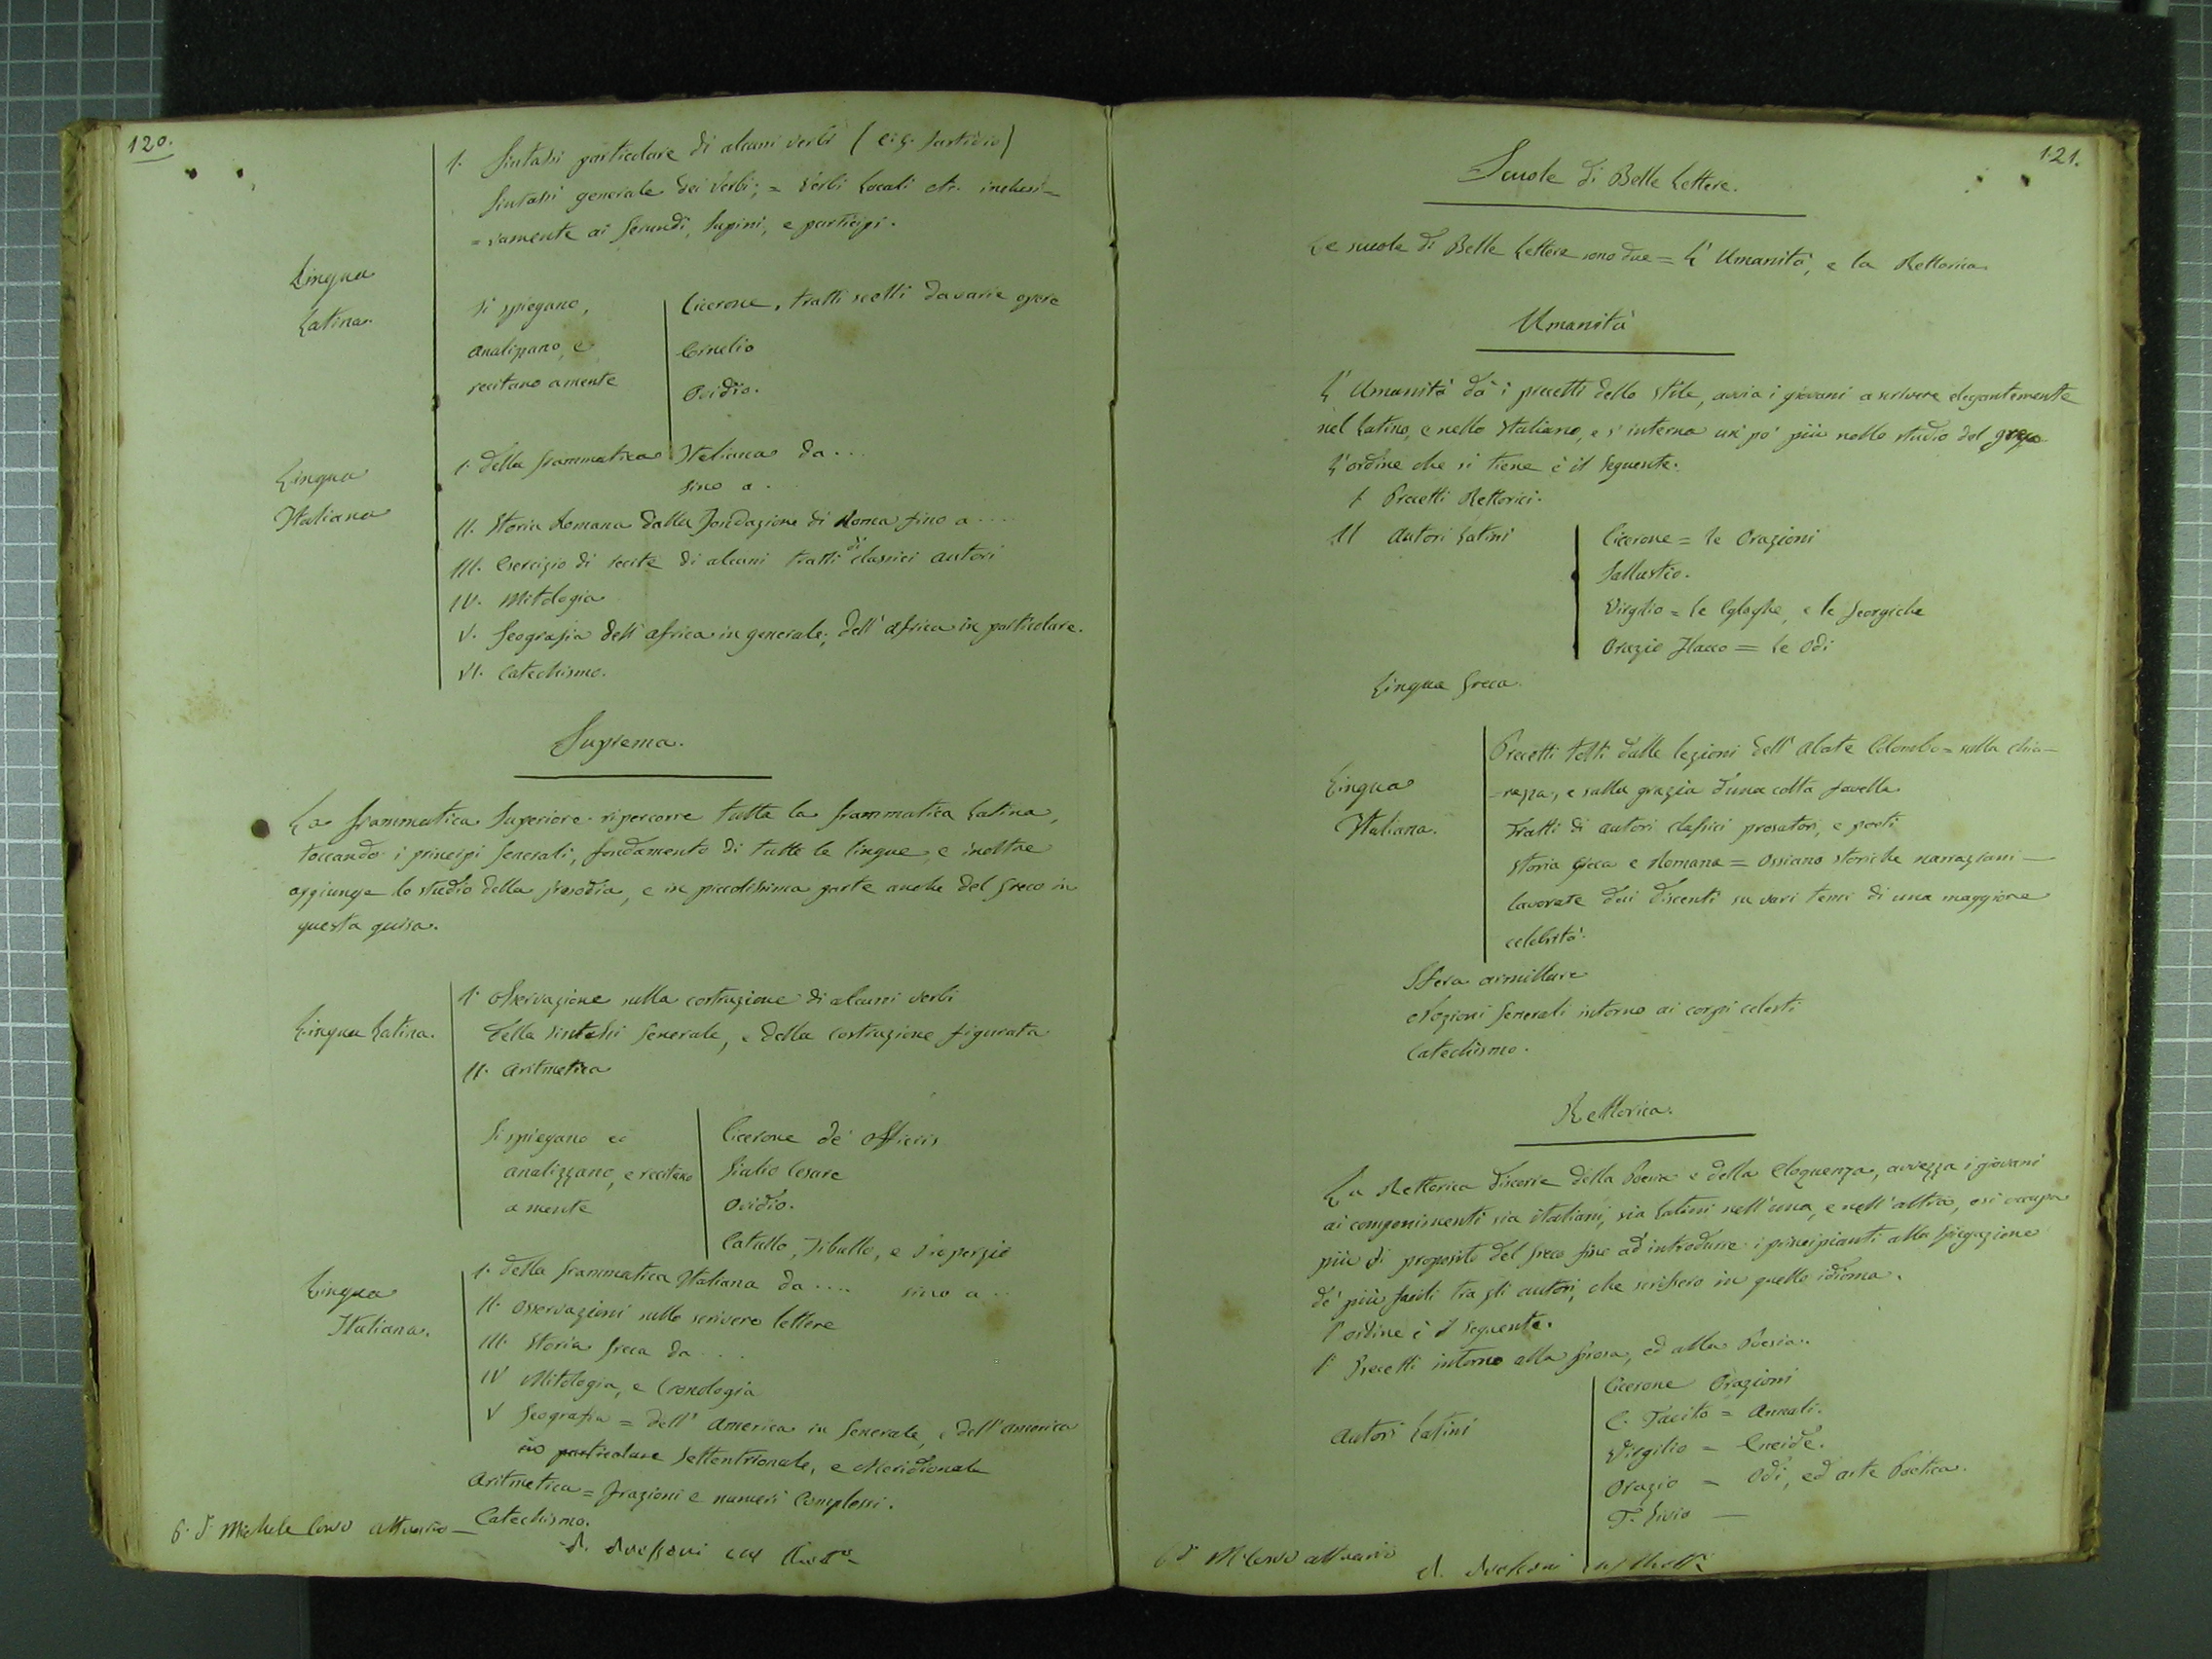 120.
I. Sintassi particolare di alcuni verbi (
Sintassi generale dei Verbi; = Verbi Locali etc. inclusi=
=vamente ai Gerundi, Supini, e participi.
Lingua
Latina.
Si spiegano,
analizzano, e
recitano a mente
Cicerone, tratti scelti da varie opere
Cornelio
Ovidio.
Lingua
Italiana
I. della Grammatica Italiana da...
sino a .
II. Storia Romana dalla Fondazione di Roma fino a ....
III. Esercizio di recite di alcuni tratti di classici autori
IV. Mitologia
V. Geografia dell'Africa in generale; dell'Africa in particolare.
VI. Catechismo.
Suprema.
La Grammatica Superiore ripercorre tutta la Grammatica Latina,
toccando i principi Generali, fondamento di tutte le lingue, e inoltre
aggiunge lo studio della prosodia, e in piccolissima parte anche del Greco in
questa guisa.
Lingua Latina.
I. Osservazione sulla costruzione di alcuni verbi
della Sintassi Generale, e della costruzione figurata
II. Aritmetica
Si spiegano
analizzano, e recitano
a mente
Cicerone de' Officiis
Giulio Cesare
Ovidio.
Catullo, Tibullo, e Properzio
Lingua
Italiana.
I. della Grammatica Italiana da .... sino a ..
II. Osservazioni sullo scrivere lettere
III. Storia Greca da ....
IV Mitologia, e Cronologia
V Geografia = dell'America in Generale, e dell'America
in particolare Settentrionale, e Meridionale
Aritmetica = frazioni e numeri Complessi.
Catechismo.
Michele Corvo attuario
121.
Scuole di Belle Lettere.
Le scuole di Belle Lettere sono due = L'Umanità, e la Rettorica
Umanità
L'Umanità dà i precetti dello stile, avvia i giovani a scrivere elegantemente
nel Latino, e nello Italiano, e s'interna un po' più nello studio del greco
L'ordine che si tiene è il seguente.
I Precetti Rettorici.
II Autori Latini
Cicerone = le Orazioni
Sallustio.
Virgilio = le Egloghe, e le Georgiche
Orazio Flacco = le Odi
Lingua Greca.
Lingua
Italiana.
Precetti tolti dalle lezioni dell'Abate Colombo = sulla chia-
-rezza, e sulla grazia d'una colta favella
Tratti di autori classici prosatori, e poeti
Storia Greca e Romana = Ossiano storiche narrazioni —
lavorate dai discenti su vari temi di una maggiore
celebrità.
Sfera armillare
Nozioni Generali intorno ai corpi celesti
Catechismo.
Rettorica.
La Rettorica discorre della Poesia e della Eloquenza, avvezza i giovani
ai componimenti sia italiani, sia Latini nell'una, e nell'altra, e si occupa
più di proposito del Greco fino ad introdurre i principianti alla spiegazione
de' più facili tra gli autori, che scrissero in quello idioma.
L'ordine è il seguente.
I. Precetti intorno alla prosa, ed alla Poesia.
Autori Latini
Cicerone Orazioni
C. Tacito = Annali.
Virgilio = Eneide.
Orazio = Odi, ed arte Poetica.
T. Livio —
M. Corvo attuario